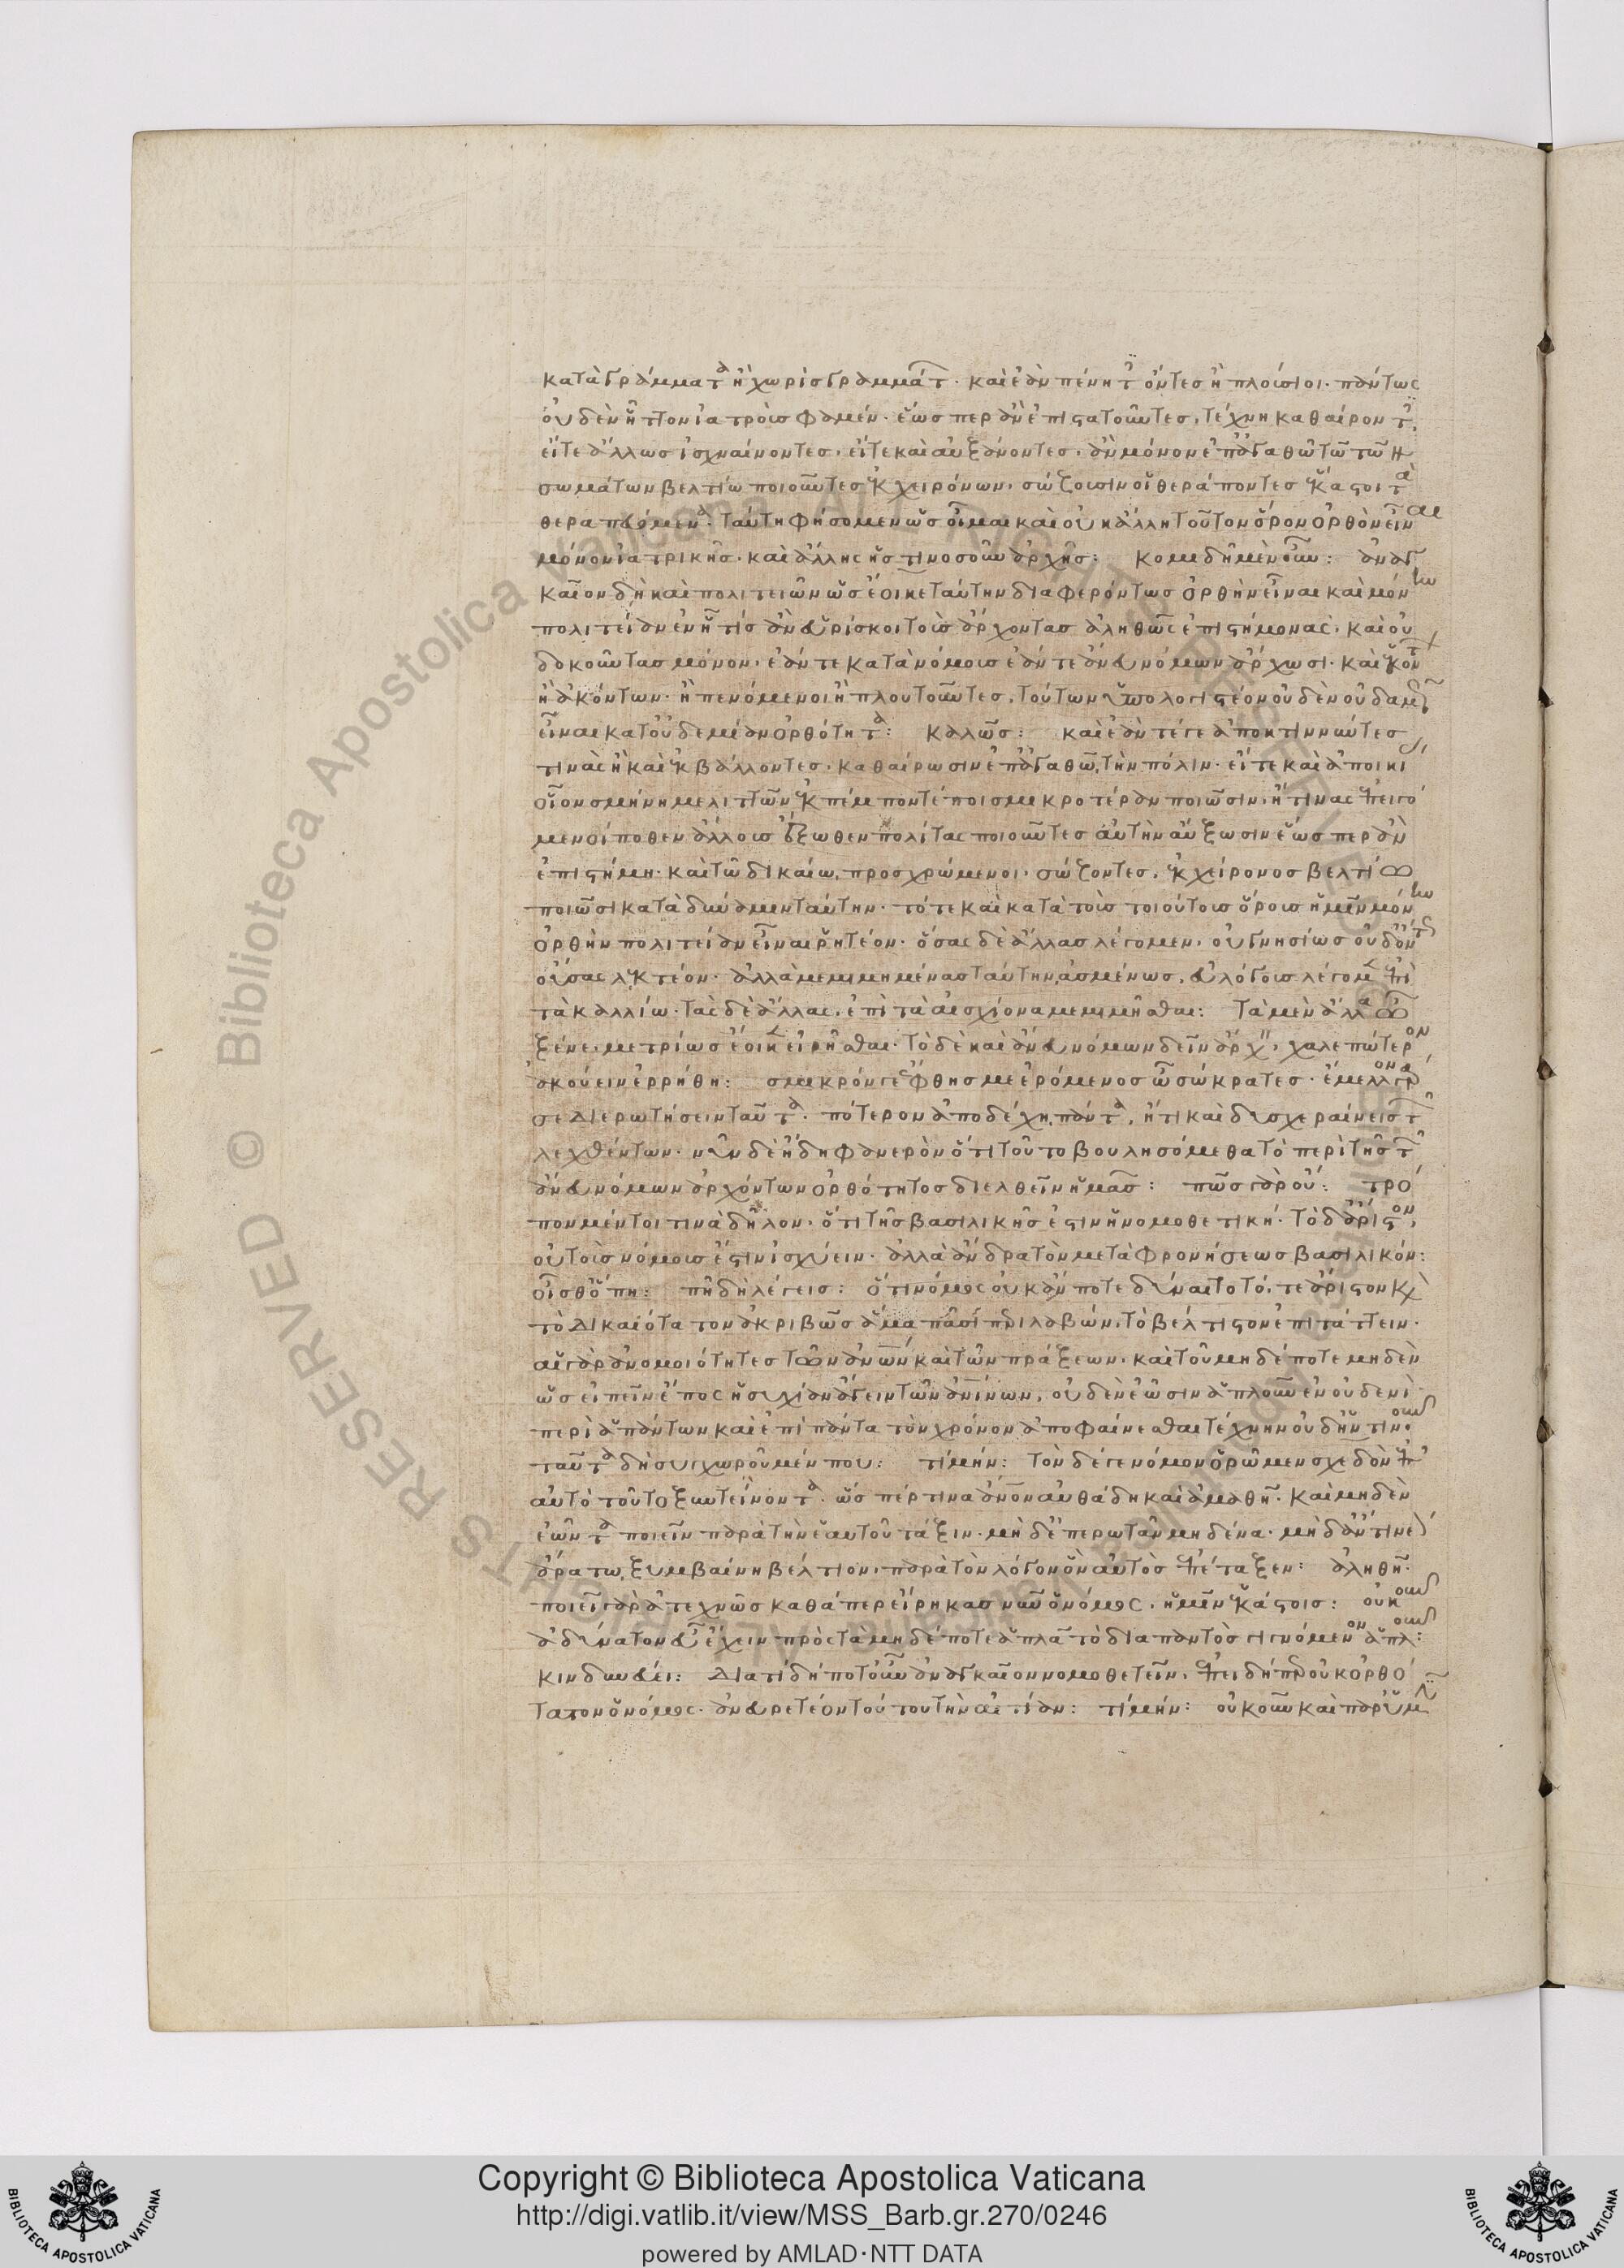 κατὰ γράμματα ἢ χωρὶς γραμμάτων· καὶ ἐὰν πένητες ὄντες ἢ πλούσιοι· πάντως
οὐδὲν ἧττον ἰατροὺς φαμέν· ἕως περ ἂν ἐπιστατοῦντες, τέχνη καθαίροντες,
εἴτε ἄλλως ἰσχναίνοντες, εἴτε καὶ αὐξάνοντες, ἂν μόνον ἐπ' ἀγαθῶ τῶ τῶν
σωμάτων βελτίω ποιοῦντες ἐκ χειρόνων, σώζουσιν οἱ θεράποντες ἕκαστοι τὰ
θεραπευόμενα· ταύτη φήσομεν ὡς οἶμαι καὶ οὐκ ἄλλη τοῦτον ὅρον ὀρθὸν εἶναι
μόνον ἰατρικῆς· καὶ ἄλλης ἧς τινοσοῦν ἀρχῆς: κομιδῆ μὲν οὖν: ἀναγ
καῖον δὴ καὶ πολιτειῶν ὡς ἔοικε ταύτην διαφερόντως ὀρθὴν εἶναι καὶ μόνην
πολιτείαν ἐν ἧ τίς ἂν εὑρίσκοι τοὺς ἄρχοντας ἀληθῶς ἐπιστήμονας, καὶ οὐ
δοκοῦντας μόνον, ἐάν τε κατὰ νόμους ἐάν τε ἄνευ νόμων ἄρχωσι· καὶ ἑκόντων
ἢ ἀκόντων· ἢ πενόμενοι ἢ πλουτοῦντες, τούτων ὑπολογιστέον οὐδὲν οὐδαμῶς
εἶναι κατ' οὐδεμίαν ὀρθότητα: καλῶς: καὶ ἐάν τέ γε ἀποκτιννύντες
τινὰς ἢ καὶ ἐκβάλλοντες, καθαίρωσιν ἐπ' ἀγαθῶ τὴν πόλιν· εἴτε καὶ ἀποικίας
οἷον σμήνη μελιττῶν ἐκπέμποντές ποι σμικροτέραν ποιῶσιν, ἤ τινας ἐπεισαγό
μενοί ποθεν ἄλλους ἔξωθεν πολίτας ποιοῦντες αὐτὴν αὔξωσιν ἕως περ ἂν
ἐπιστήμη· καὶ τῶ δικαίω, προσχρώμενοι, σώζοντες, ἐκ χείρονος βελτίω
ποιῶσι κατὰ δύναμιν ταύτην· τότε καὶ κατὰ τοὺς τοιούτους ὅρους ἡμῖν μόνην
ὀρθὴν πολιτείαν εἶναι ῥητέον· ὅσας δὲ ἄλλας λέγομεν, οὐ γνησίως οὐδ' ὄντως
οὔσας λεκτέον· ἀλλὰ μεμιμημένας ταύτην, ἀσμένως, εὐλόγους λέγομεν ἐπὶ
τὰ καλλίω· τὰς δὲ ἄλλας, ἐπὶ τὰ αἰσχίονα μεμιμῆσθαι: τὰ μὲν ἄλλα ὦ
ξένε, μετρίως ἔοικεν εἰρῆσθαι· τὸ δὲ καὶ ἄνευ νόμων δεῖν ἄρχειν, χαλεπώτερον
ἀκούειν ἐρρήθη: σμικρόν γε ἔφθης με ἐρόμενος ὦ σώκρατες· ἔμελλον γάρ
σε διερωτήσειν ταῦτα· πότερον ἀποδέχη πάντα, ἤ τι καὶ δυσχεραίνεις τῶν
λεχθέντων· νῦν δὲ ἤδη φανερὸν ὅτι τοῦτο βουλησόμεθα τὸ περὶ τῆς τῶν
ἄνευ νόμων ἀρχόντων ὀρθότητος διελθεῖν ἡμᾶς: πῶς γὰρ οὔ: τρό
πον μέντοι τινὰ δῆλον, ὅτι τῆς βασιλικῆς ἐστιν ἡ νομοθετική· τὸ δ' ἄριστον,
οὐ τοὺς νόμους ἐστὶν ἰσχύειν· ἀλλὰ ἄνδρα τὸν μετὰ φρονήσεως βασιλικόν:
οἶσθ' ὅπη: πῆ δὴ λέγεις: ὅτι νόμος οὐκ ἄν ποτε δύναιτο τό, τε ἄριστον καὶ
τὸ δικαιότατον ἀκριβῶς ἅμα πᾶσι περιλαβών, τὸ βέλτιστον ἐπιτάττειν·
αἱ γὰρ ἀνομοιότητες τῶν ἀνῶν καὶ τῶν πράξεων, καὶ τοῦ μηδέποτε μηδὲν
ὡς εἰπεῖν ἔπος ἡσυχίαν ἄγειν τῶν ἀνίνων, οὐδὲν ἐῶσιν ἁπλοῦν ἐν οὐδενὶ
περὶ ἁπάντων καὶ ἐπὶ πάντα τὸν χρόνον ἀποφαίνεσθαι τέχνην οὐδ' ἥντινοῦν
ταῦτα δὴ συγχωροῦμέν που: τί μήν: τὸν δέ γε νόμον ὁρῶμεν σχεδὸν ἐπ'
αὐτὸ τοῦτο ξυντείνοντα· ὥς πέρ τινα ἄνον αὐθάδη καὶ ἀμαθῆ· καὶ μηδὲν
ἐῶντα ποιεῖν παρὰ τὴν ἑαυτοῦ τάξιν· μὴ δ' ἐπερωτᾶν μηδένα· μὴ δ' ἄν τι νέον
ἄρα τω, ξυμβαίνη βέλτιον, παρὰ τὸν λόγον ὃν αὐτὸς ἐπέταξεν: ἀληθῆ·
ποιεῖ γὰρ ἀτεχνῶς καθάπερ εἴρηκας νῦν ὁ νόμος, ἡμῖν ἑκάστοις: οὐκοῦν
ἀδύνατον εὖ ἔχειν πρὸς τὰ μηδέποτε ἁπλᾶ τὸ διαπαντὸς γιγνόμενον ἁπλοῦν:
κινδυνεύει: διατί δή ποτ' οὖν ἀναγκαῖον νομοθετεῖν, ἐπειδήπερ οὐκ ὀρθό
τατον ὁ νόμος· ἀνευρετέον τούτου τὴν αἰτίαν: τί μήν: οὐκοῦν καὶ παρ' ὑμῖν
Copyright © Biblioteca Apostolica Vaticana
http://digi.vatlib.it/view/MSS_Barb.gr.270/0246
powered by AMLAD·NTT DATA
BIBLIOTECA APOSTOLICA VATICANA
BIBLIOTECA APOSTOLICA VATICANA